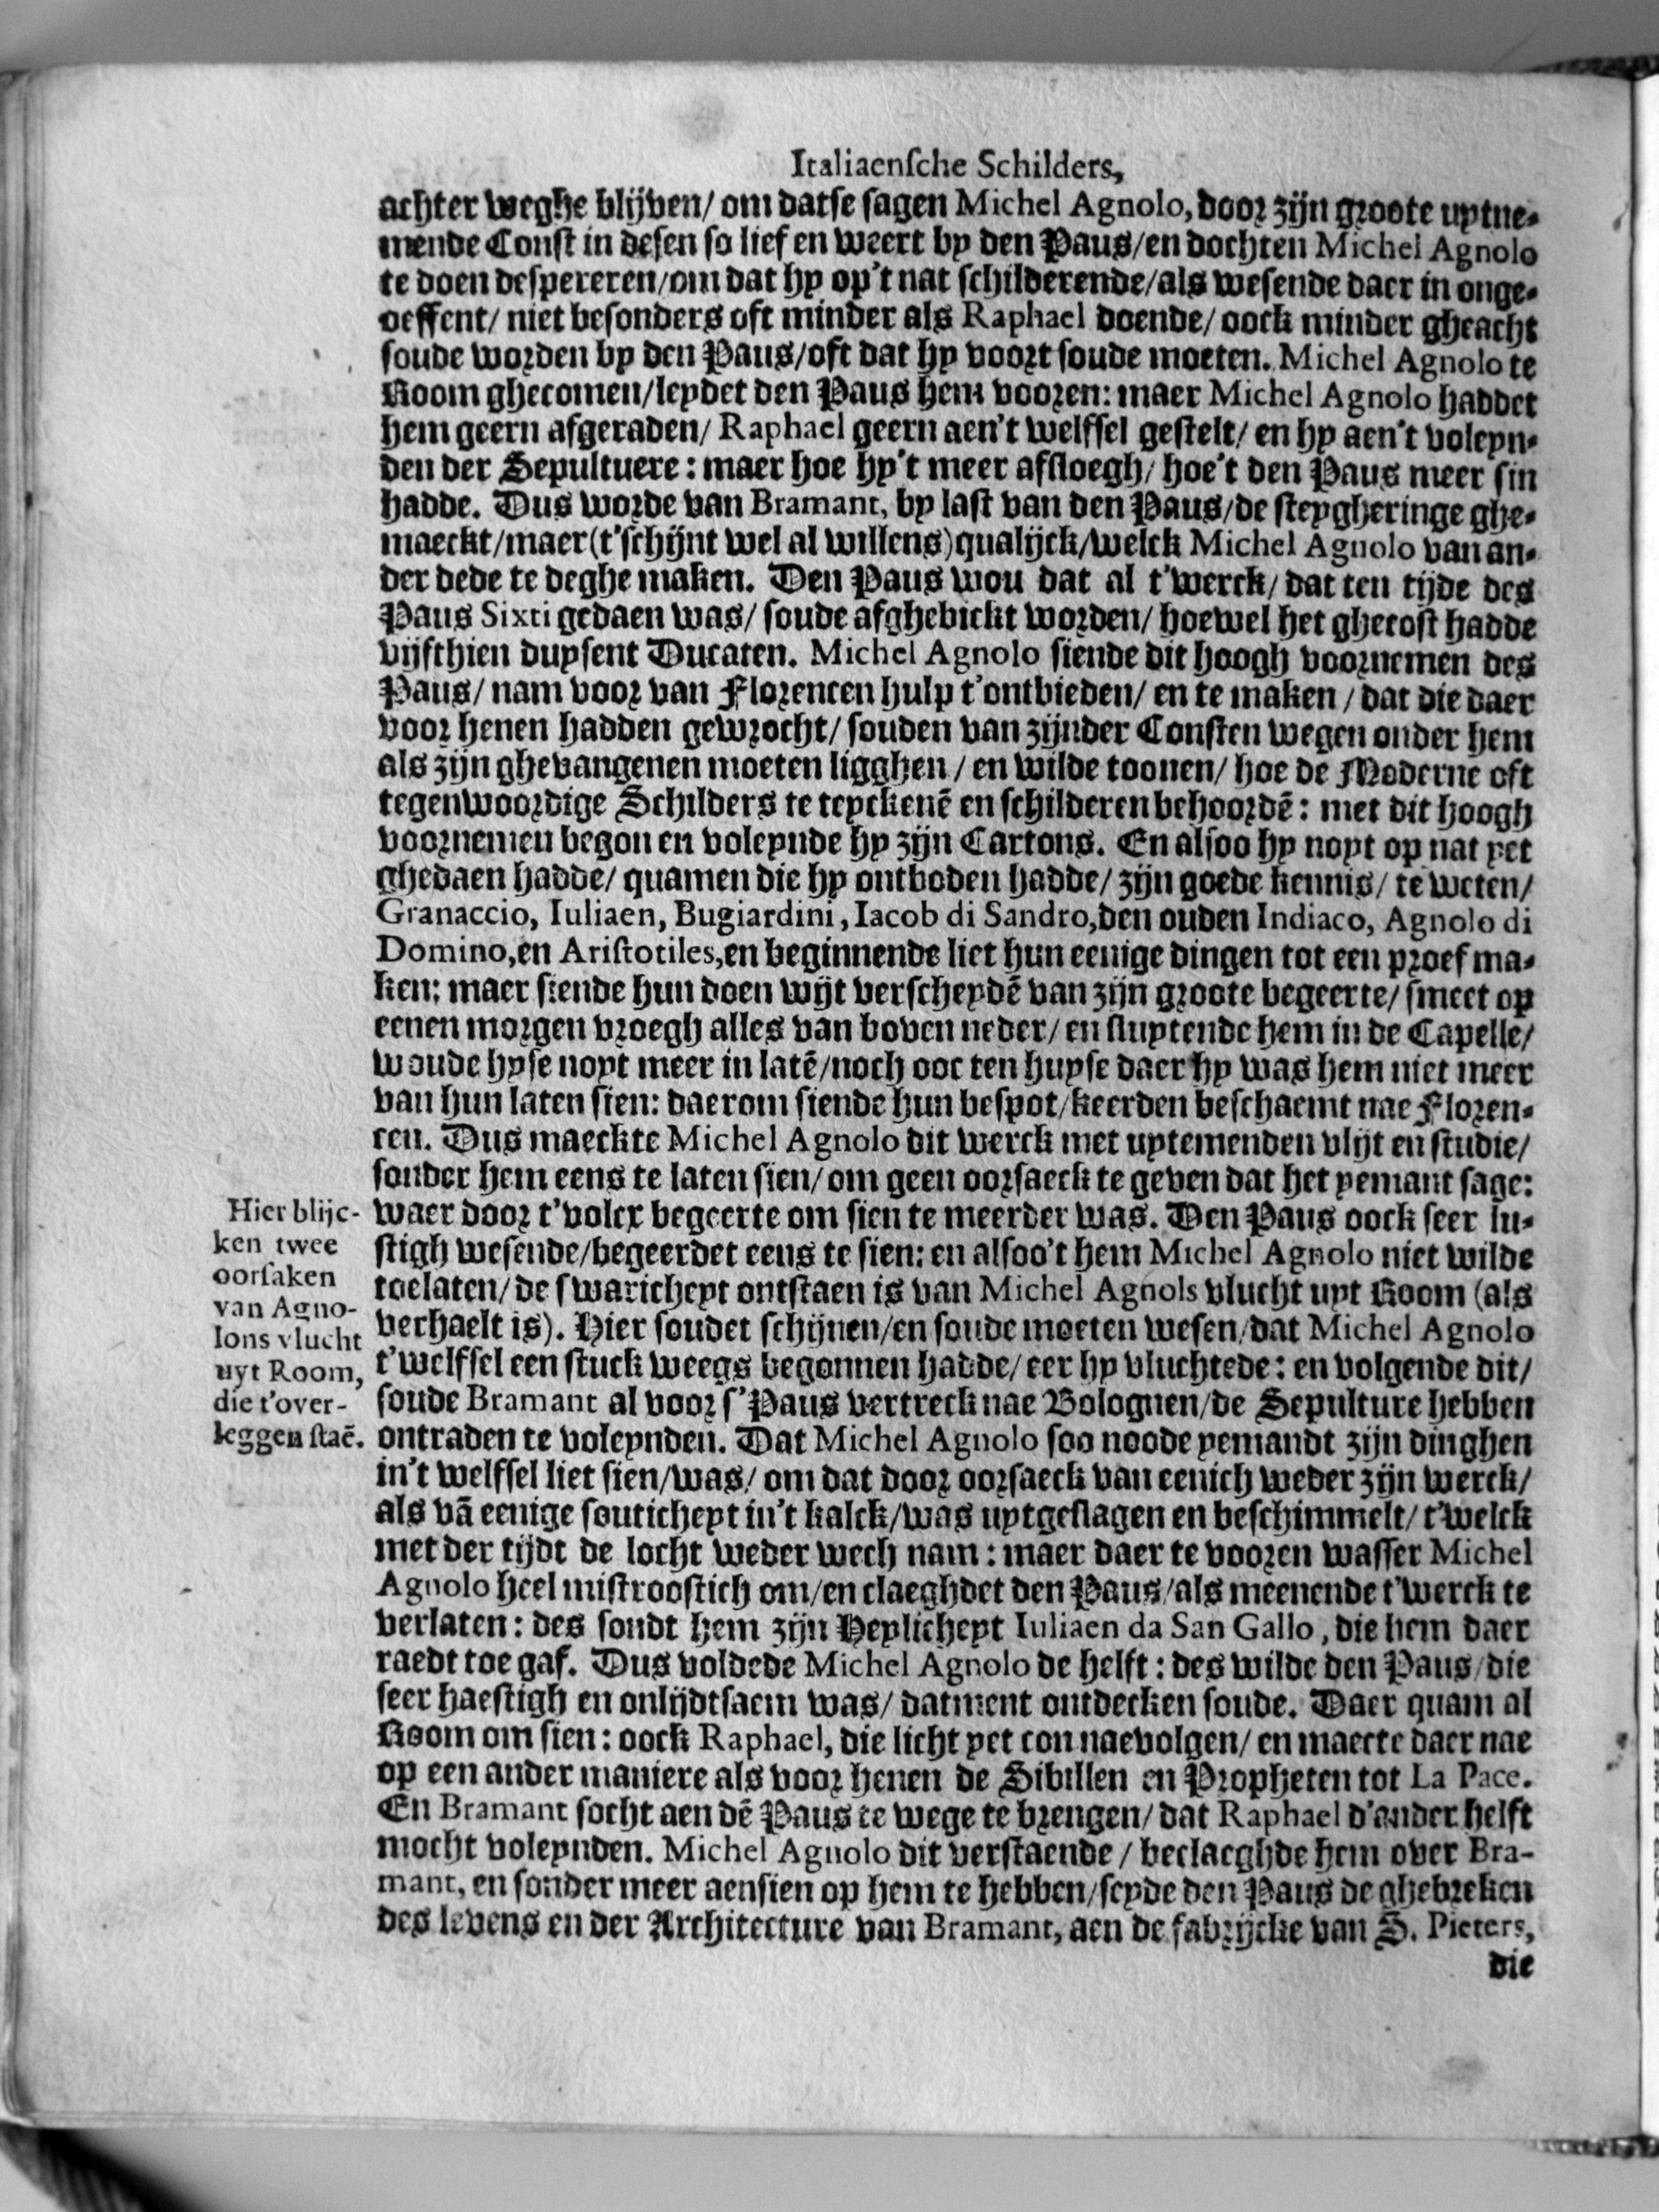 Italiaensche Schilders,
achter weghe blijven/ om datse sagen Michel Agnolo, door zijn groote uytne-
mende Const in desen so lief en weert by den Paus/en dochten Michel Agnolo
te doen despereren/om dat hy op't nat schilderende/als wesende daer in onge-
oeffent/ niet besonders oft minder als Raphael doende/ oock minder gheacht
soude worden by den Paus/oft dat hy voort soude moeten. Michel Agnolo te
Room ghecomen/leydet den Paus hem vooren: maer Michel Agnolo haddet
hem geern afgeraden/ Raphael geern aen't welfsel gestelt/ en hy aen't voleyn-
den der Sepultuere: maer hoe hy't meer afsloegh/ hoe't den Paus meer sin
hadde. Dus worde van Bramant, by last van den Paus/de steygheringe ghe-
maeckt/maer(t'schijnt wel al willens)qualijck/welck Michel Agnolo van an-
der dede te deghe maken. Den Paus wou dat al t'werck/ dat ten tijde des
Paus Sixti gedaen was/ soude afghebickt worden/ hoewel het ghecost hadde
vijfthien duysent Ducaten. Michel Agnolo siende dit hoogh voornemen des
Paus/ nam voor van Florencen hulp t'ontbieden/ en te maken / dat die daer
voor henen hadden gewrocht/ souden van zijnder Consten wegen onder hem
als zijn ghevangenen moeten ligghen / en wilde toonen/ hoe de Moderne oft
tegenwoordige Schilders te teyckenē en schilderen behoordē: met dit hoogh
voornemen begon en voleynde hy zijn Cartons. En alsoo hy noyt op nat yet
ghedaen hadde/ quamen die hy ontboden hadde/ zijn goede kennis/ te weten/
Granaccio, Iuliaen, Bugiardini, Iacob di Sandro,den ouden Indiaco, Agnolo di
Domino,en Aristotiles,en beginnende liet hun eenige dingen tot een proef ma-
ken: maer siende hun doen wijt verscheydē van zijn groote begeerte/ smeet op
eenen morgen vroegh alles van boven neder/ en sluytende hem in de Capelle/
woude hyse noyt meer in latē/noch ooc ten huyse daer hy was hem niet meer
van hun laten sien: daerom siende hun bespot/keerden beschaemt nae Floren-
cen. Dus maeckte Michel Agnolo dit werck met uytemenden vlijt en studie/
sonder hem eens te laten sien/ om geen oorsaeck te geven dat het yemant sage:
waer door t'volcx begeerte om sien te meerder was. Den Paus oock seer lu-
stigh wesende/begeerdet eens te sien: en alsoo't hem Michel Agnolo niet wilde
toelaten/de swaricheyt ontstaen is van Michel Agnols vlucht uyt Room (als
verhaelt is). Hier soudet schijnen/en soude moeten wesen/dat Michel Agnolo
t'welfsel een stuck weegs begonnen hadde/ eer hy vluchtede: en volgende dit/
soude Bramant al voor s'Paus vertreck nae Bolognen/de Sepulture hebben
ontraden te voleynden. Dat Michel Agnolo soo noode yemandt zijn dinghen
in't welfsel liet sien/was/ om dat door oorsaeck van eenich weder zijn werck/
als vā eenige souticheyt in't kalck/was uytgeslagen en beschimmelt/ t'welck
met der tijdt de locht weder wech nam: maer daer te vooren wasser Michel
Agnolo heel mistroostich om/en claeghdet den Paus/als meenende t'werck te
verlaten: des sondt hem zijn Heylicheyt Iuliaen da San Gallo, die hem daer
raedt toe gaf. Dus voldede Michel Agnolo de helft: des wilde den Paus/die
seer haestigh en onlijdtsaem was/ datment ontdecken soude. Daer quam al
Room om sien: oock Raphael, die licht yet con naevolgen/ en maecte daer nae
op een ander maniere als voor henen de Sibillen en Propheten tot La Pace.
En Bramant socht aen dē Paus te wege te brengen/ dat Raphael d'ander helft
mocht voleynden. Michel Agnolo dit verstaende / beclaeghde hem over Bra-
mant, en sonder meer aensien op hem te hebben/seyde den Paus de ghebreken
des levens en der Architecture van Bramant, aen de fabrijcke van S. Pieters,
die
Hier blijc-
ken twee
oorsaken
van Agno-
lons vlucht
uyt Room,
die t'over-
leggen staē.